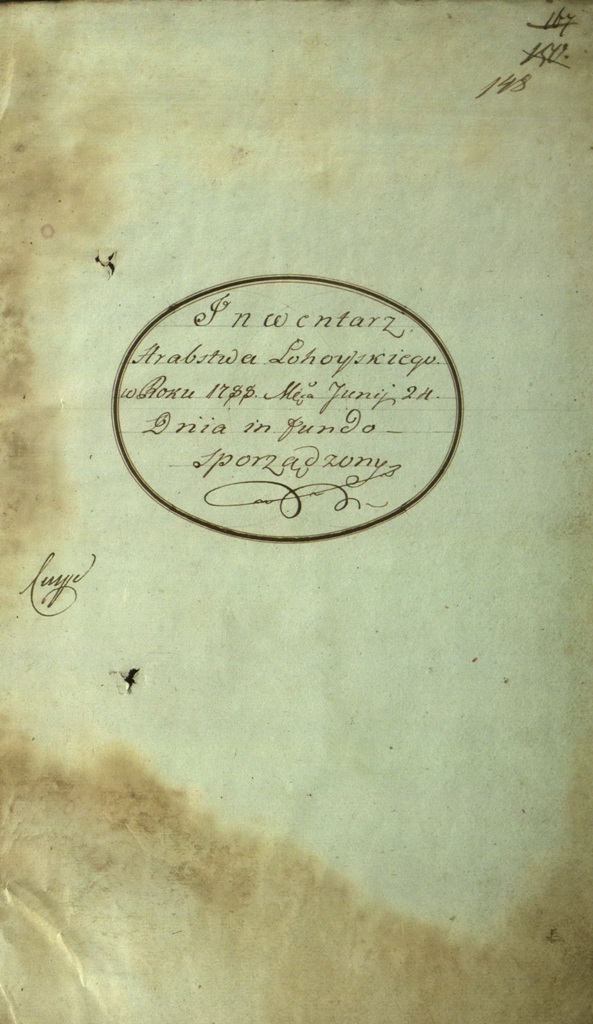 167
150.
148
Inwentarz
Hrabstwa Lohoyskiego.
w Roku 1788. Mca Junij 24.
Dnia in fundo
sporządzony